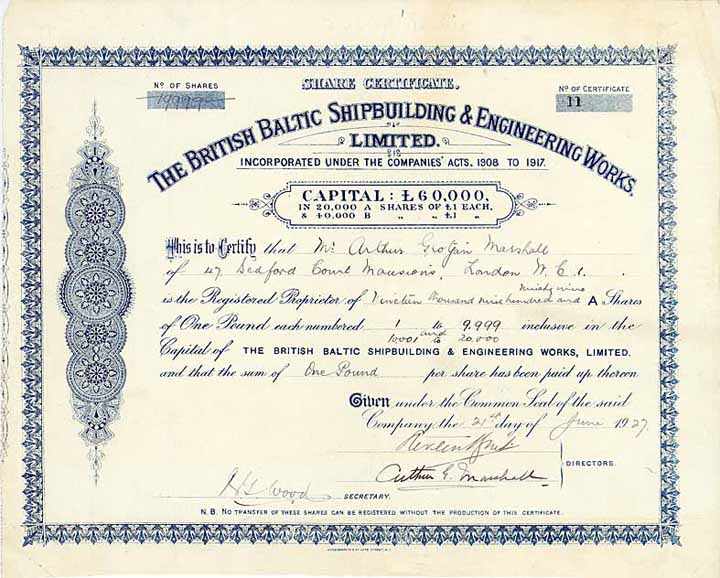 No OF SHARES
19999
SHARE CERTIFICATE.
No OF CERTIFICATE
11
THE BRITISH BALTIC SHIPBUILDING & ENGINEERING WORKS,
LIMITED.
INCORPORATED UNDER THE COMPANIES' ACTS, 1908 TO 1917.
CAPITAL: £60,000,
IN 20,000 A SHARES OF £1 EACH,
& 40,000 B " " £1 "
This is to Certify that Mr. Arthur Grogan Marshall
of 47 Bedford Court Mansions, London W.C.1.
ninety nine
is the Registered Proprietor of Nineteen thousand nine hundred and A Shares
of One Pound each numbered 1 to 9.999 inclusive in the
10001 and to 20.000
Capital of THE BRITISH BALTIC SHIPBUILDING & ENGINEERING WORKS, LIMITED.
and that the sum of One Pound per share has been paid up thereon
Given under the Common Seal of the said
Company the 21st day of June 1927.
Arthur G. Marshall
DIRECTORS.
Wood
SECRETARY.
N.B. NO TRANSFER OF THESE SHARES CAN BE REGISTERED WITHOUT THE PRODUCTION OF THIS CERTIFICATE.